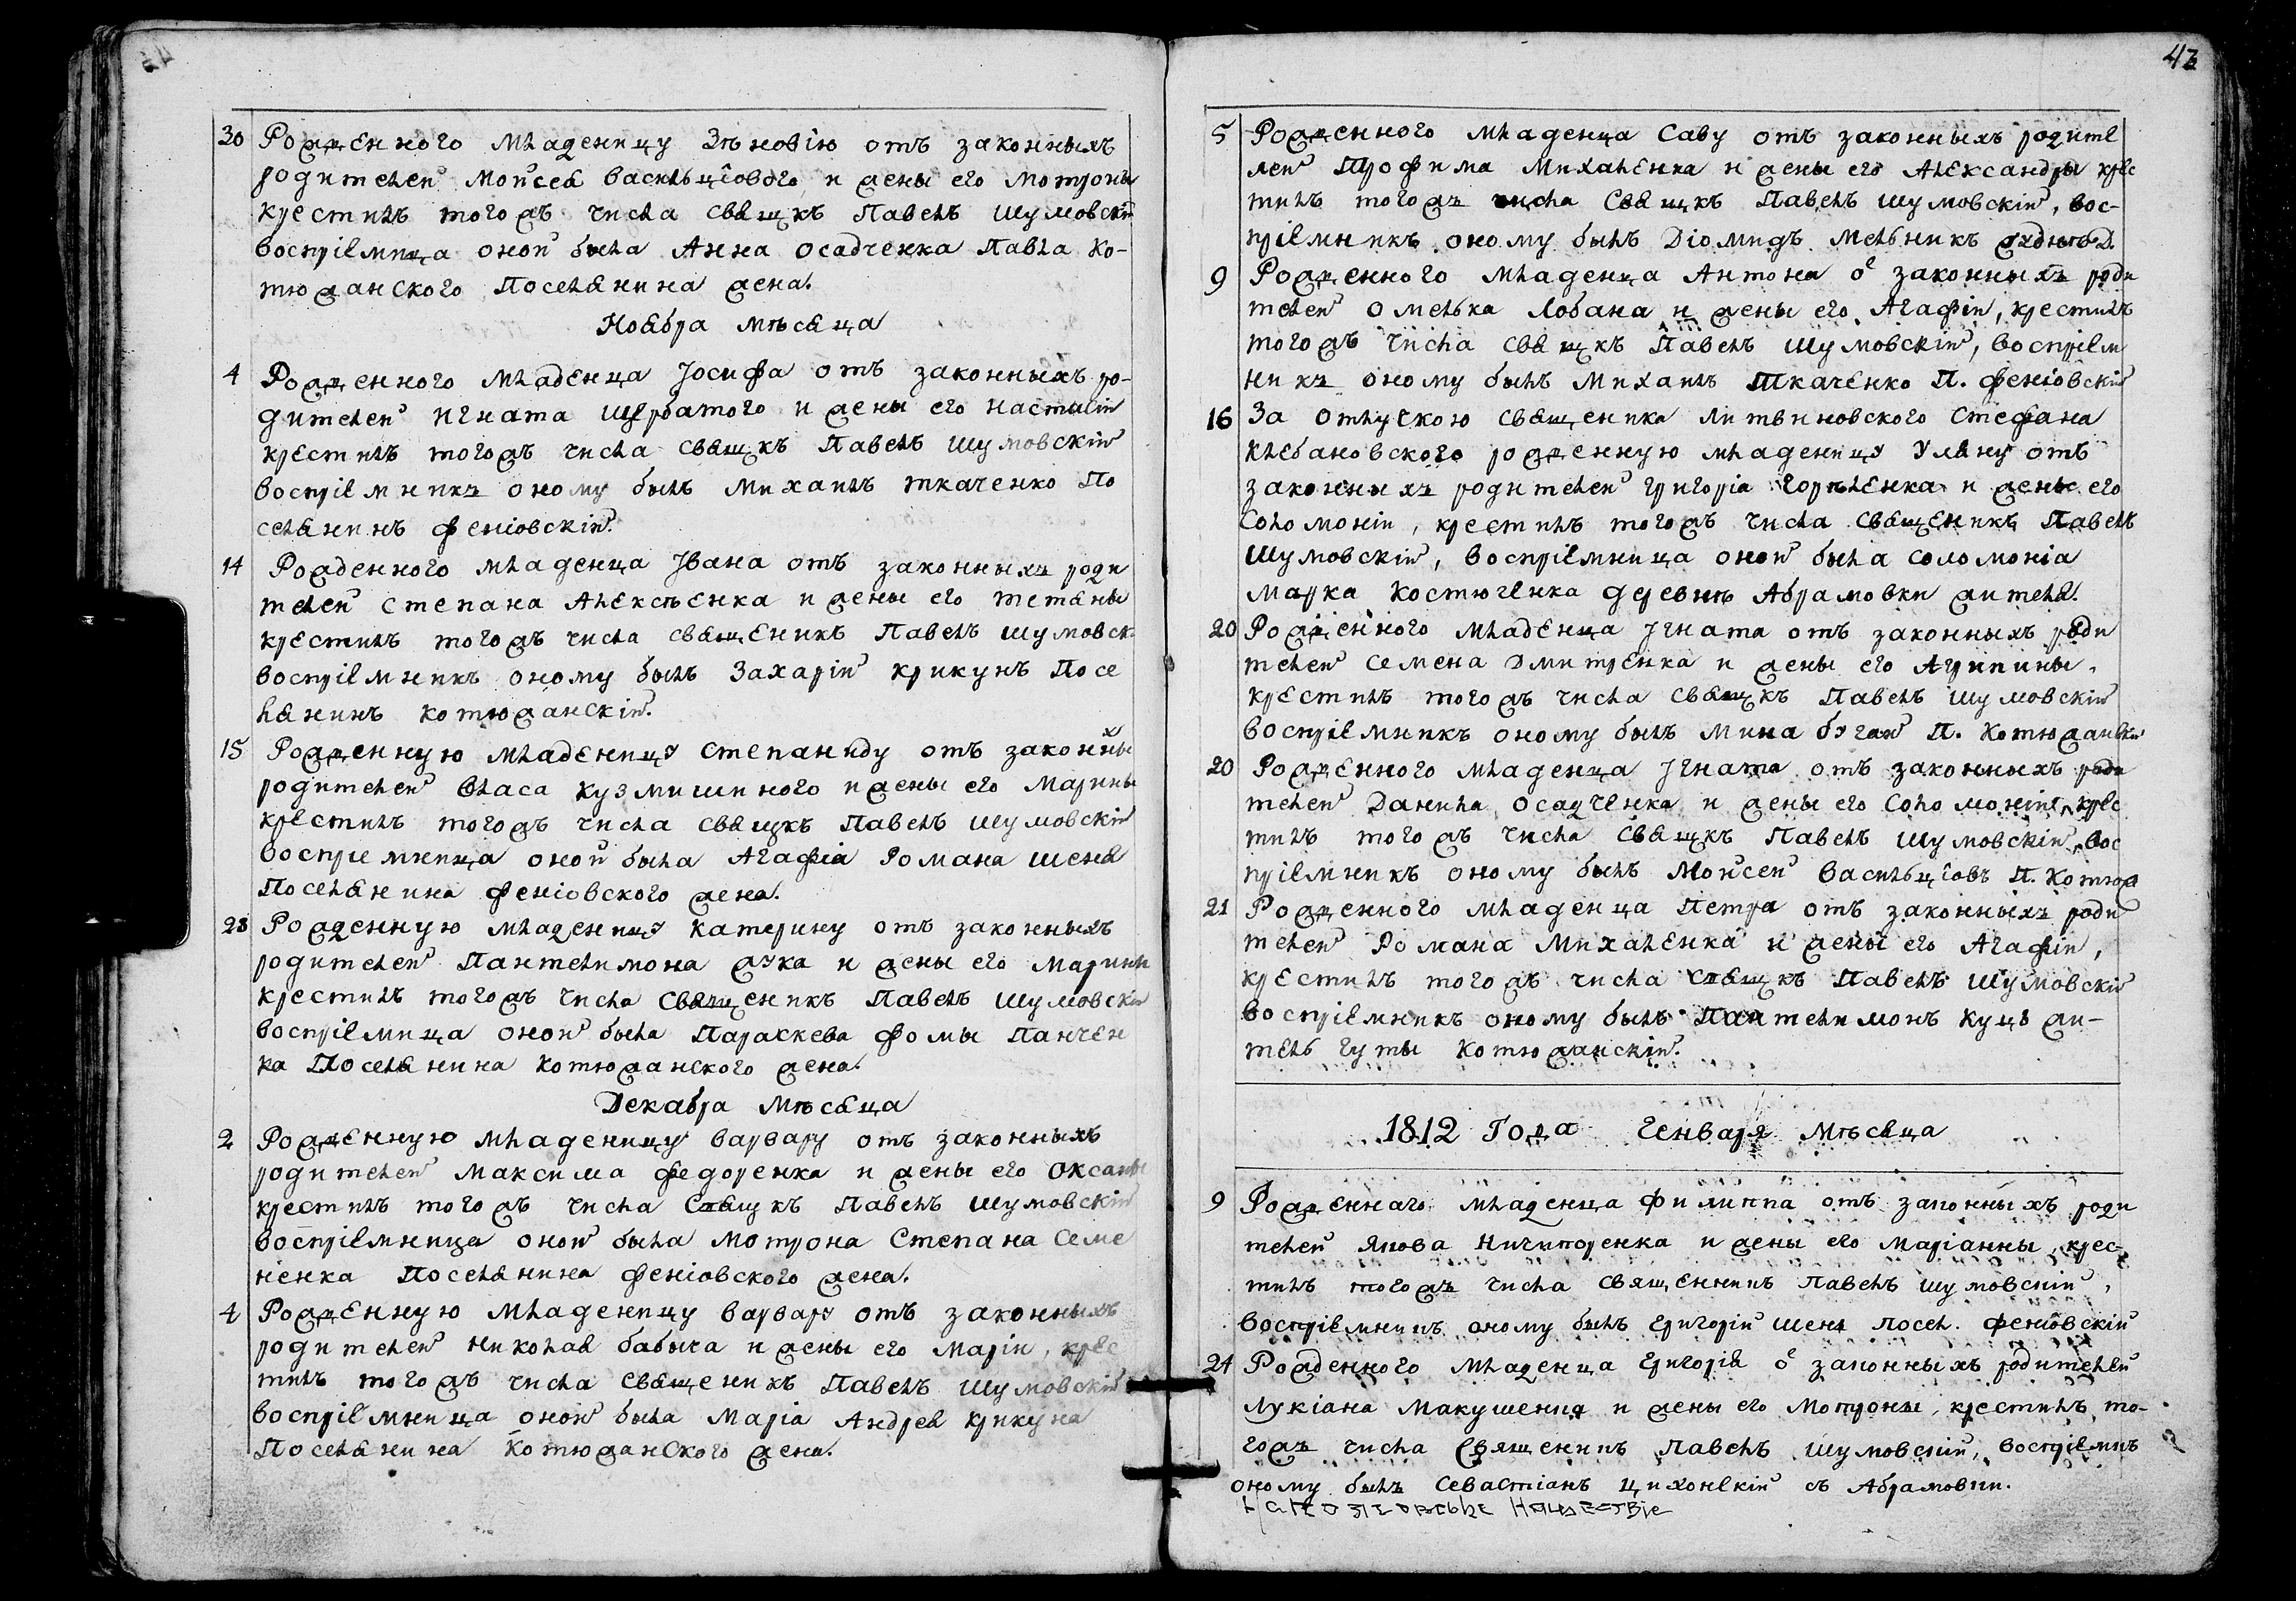 30 Рожденного младеницу Зѣновію отъ законныхъ
родителей Мойсея Васильцїового и жены его Мотроны
крестилъ тогожъ числа свящкъ Павелъ Шумовскій
воспріемница оной была Анна Осадченка Павла Ко-
тюжанского Поселянина жена.
Ноября мѣсяца
4 Рожденного младенца Іосифа отъ законныхъ ро-
дителей Игната Щербатого и жены его Настасіи
крестилъ тогожъ числа свящкъ Павелъ Шумовскій
воспріемникъ оному былъ Михаилъ Ткаченко По
селянинъ Феніовскій.
14 Рожденного младенца Івана отъ законныхъ роди
телей Степана Алексѣенка и жены его Тетяны
крестилъ тогожъ числа священикъ Павелъ Шумовск
воспріемникъ оному былъ Захарій Крикунъ Посе
лянинъ Котюжанскій.
15 Рожденную младеницу Степаниду отъ законныхъ
родителей Власа Кузмишиного и жены его Марины
крестилъ тогожъ числа свящкъ Павелъ Шумовскій
воспріемница оной была Агафія Романа Шеня
Поселянина Феніовского жена.
28 Рожденную младеницу Катерину отъ законныхъ
родителей Пантелимона Жука и жены его Марины
крестилъ тогожъ числа священикъ Павелъ Шумовскій
воспріемица оной была Параскева Фомы Панчен
ка Поселянина Котюжанского жена.
Декабра Мѣсяца
2 Рожденную младеницу Варвару отъ законныхъ
родителей Максима Федоренка и жены его Оксаны
крестилъ тогожъ числа Свящкъ Павелъ Шумовскій
воспріемница оной была Мотрона Степана Семе
ненка Поселянина Феніовского жена.
4 Рожденную младеницу Варвару отъ законныхъ
родителей Николая Бабыча и жены его Маріи, крес
тилъ тогожъ числа священикъ Павелъ Шумовскій
воспріемница оной была Марія Андрея Крикуна
Поселянина Котюжанского жена.
43
5 Рожденного младенца Саву отъ законныхъ родите
лей Трофима Михаленка и жены его Александры крес
тилъ тогожъ числа Свящкъ Павелъ Шумовскій, вос-
пріемникъ оному былъ Діомидъ Мельникъ
9 Рожденного младенца Антона о законныхъ роди
телей Омелька Лобана и жены его Агафіи, крестилъ
тогожъ числа свящкъ Павелъ Шумовскій, воспріем
никъ оному былъ Михаилъ Ткаченко П. Феніовскій
16 За отлучкою священика Литвиновского Стефана
Клебановского рожденную младеницу Уляну отъ
законныхъ родителей Григорія Горѣленка и жены его
Соломоніи, крестилъ тогожъ числа священикъ Павелъ
Шумовскій, воспріемница оной была Соломоніа
Марка Костюченка деревнѣ Абрамовки жителя.
20 Рожденного младенца Ігната отъ законныхъ роди
телей Семена Дмитренка и жены его Агрипины,
крестилъ тогожъ числа свящкъ Павелъ Шумовскій
воспріемникъ оному былъ Мина Бугай П. Котюжанскій
20 Рожденного младенца Ігната отъ законныхъ роди
телей Данила Осадченка и жены его Соломоніи, крес
тилъ тогожъ числа Свящкъ Павелъ Шумовскій, вос
пріемникъ оному былъ Мойсей Васильцїовъ П. Котюж
21 Рожденного младенца Петра отъ законныхъ роди
телей Романа Михаленка и жены его Агафіи,
крестилъ тогожъ числа свящкъ Павелъ Шумовскій
воспріемникъ оному былъ Пантелимонъ Куцъ жи-
тель Гуты Котюжанскій.
1812 Года Генваря Мѣсяца
9 Рожденнаго младенца Филиппа отъ законныхъ роди
телей Якова Ничипоренка и жены его Маріанны, крес-
тилъ тогожъ числа священникъ Павелъ Шумовскій,
воспріемникъ оному былъ Григорій Шень посел. Феніовскій
24 Рожденного младенца Григорія о законныхъ родителей
Лукіана Макушенка и жены его Мотроны, крестилъ то-
гожъ числа Священикъ Павелъ Шумовскій, воспріемникъ
оному былъ Севастіанъ Цихонскій съ Абрамовки.